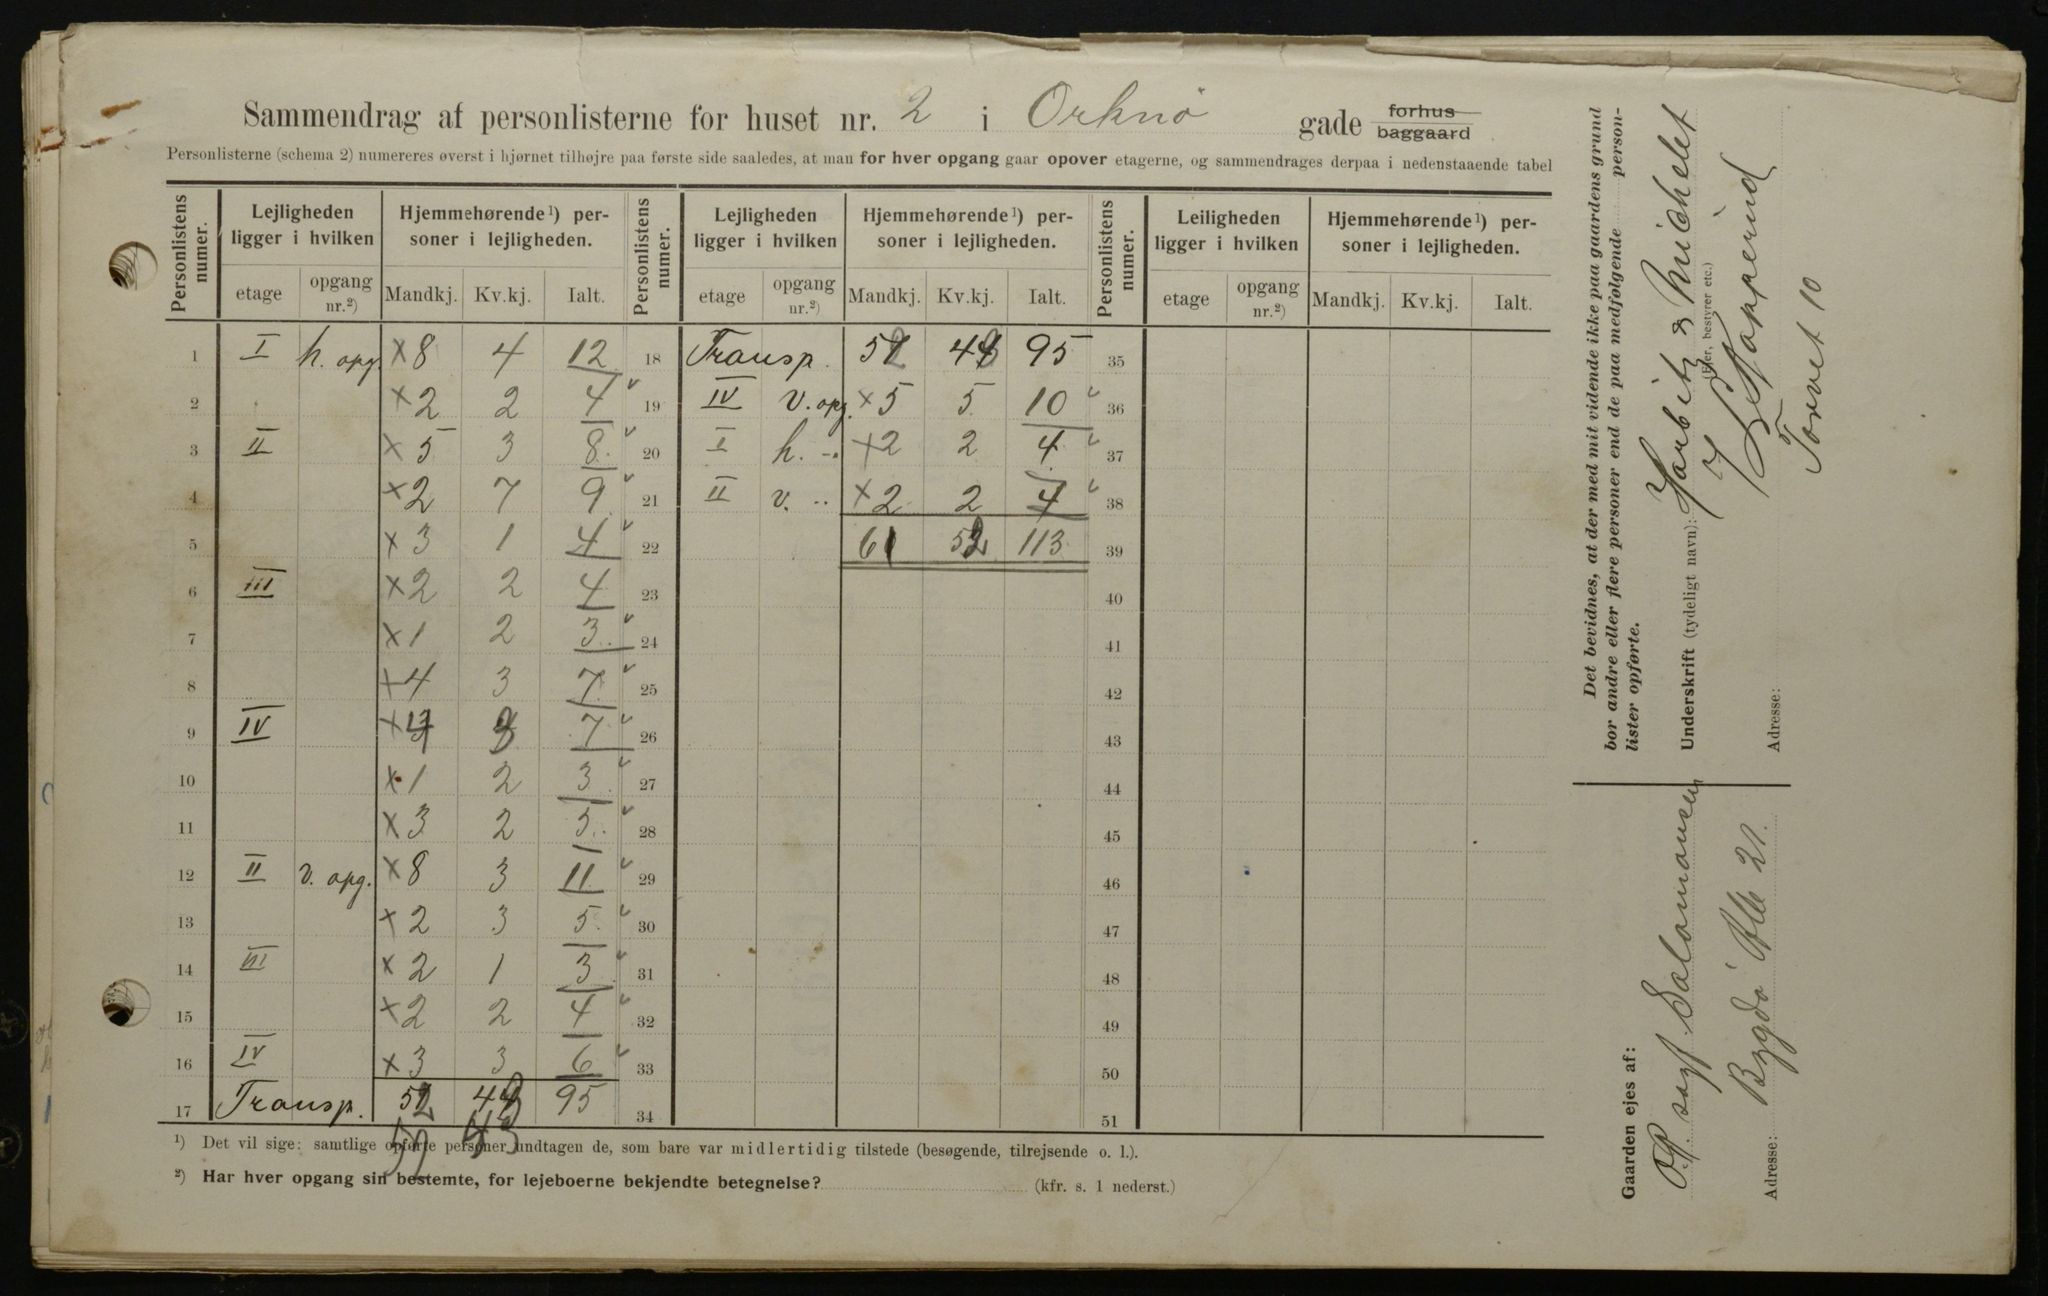 Sammendrag af personlisterne for huset nr. 2 i Orknø gade forhus baggaard
Personlisterne (schema 2) numereres øverst i hjørnet tilhøjre paa første side saaledes, at man for hver opgang gaar opover etagerne, og sammendrages derpaa i nedenstaaende tabel
Personlistens numer.
Lejligheden ligger i hvilken
Hjemmehørende¹) personer i lejligheden.
etage opgang nr.²) Mandkj. Kv.kj. Ialt.
Personlistens numer.
Lejligheden ligger i hvilken
Hjemmehørende¹) personer i lejligheden.
etage opgang nr.²) Mandkj. Kv.kj. Ialt.
Personlistens numer.
Leiligheden ligger i hvilken
Hjemmehørende¹) personer i lejligheden.
etage opgang nr.²) Mandkj. Kv.kj. Ialt.
1 I h. opg. × 8 4 12 18 Transp. 52 43 95 35
2 × 2 2 4 19 IV v. opg. × 5 5 10 36
3 II × 5 3 8 20 I h. -" × 2 2 4 37
4 × 2 7 9 21 II v. " × 2 2 4 38
5 × 3 1 4 22 61 52 113 39
6 III × 2 2 4 23 40
7 × 1 2 3 24 41
8 × 4 3 7 25 42
9 IV × 4 3 7 26 43
10 × 1 2 3 27 44
11 × 3 2 5 28 45
12 II v. opg. × 8 3 11 29 46
13 × 2 3 5 30 47
14 III × 2 1 3 31 48
15 × 2 2 4 32 49
16 IV × 3 3 6 33 50
17 Transp. 52 43 95 34 51
52 43
¹) Det vil sige: samtlige opførte personer undtagen de, som bare var midlertidig tilstede (besøgende, tilrejsende o. l.).
²) Har hver opgang sin bestemte, for lejeboerne bekjendte betegnelse? (kfr. s. 1 nederst.)
Det bevidnes, at der med mit vidende ikke paa gaardens grund
bor andre eller flere personer end de paa medfølgende person-
lister opførte.
Underskrift (tydeligt navn): Harbitz & Michelet
(Ejer, bestyrer etc.)
Adresse: Torvet 10
Gaarden ejes af: O.r. sagf. Salomonsen
Adresse: Bygdø Alle 21.